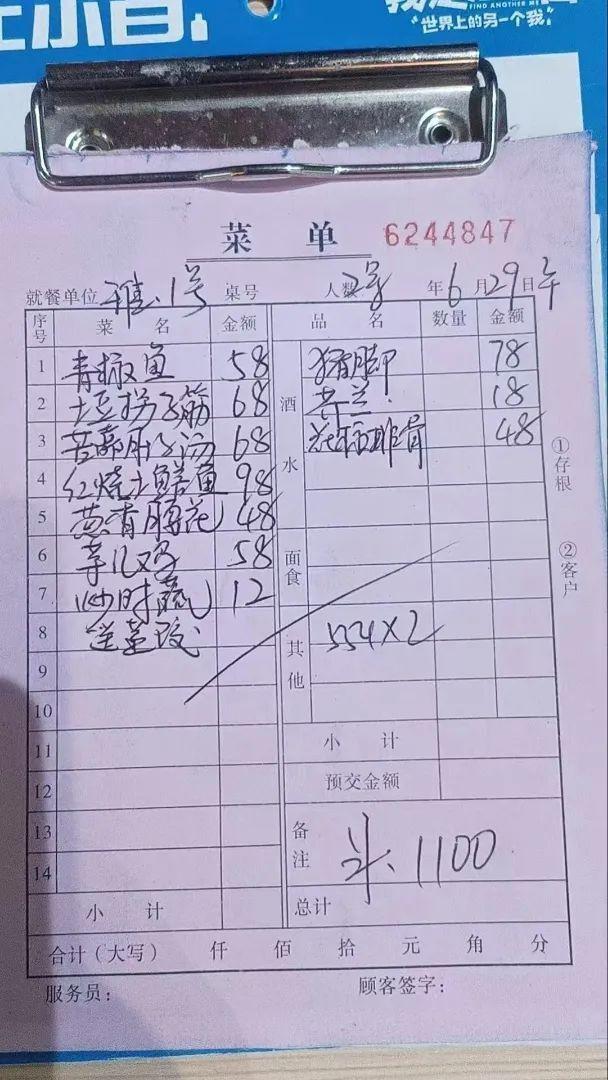 世界上的另一个我
FIND ANOTHER ME
菜 单 6244847
就餐单位 雅.1号 桌号 人数 2号 年6月29日午
序号 菜 名 金额 品 名 数量 金额
1 青椒鱼 58 猪脚 78
2 土豆拐子筋 68 芥兰 18
3 68 排骨 48
4 红烧土鳝鱼 98
5 葱青腰花 48
6 58
7 炒时蔬 12
8 送
9
10
11
12
13
14
酒水
面食
其他 554×2
小 计
预交金额
备注 斗、1100
小 计 总计
合计（大写） 仟 佰 拾 元 角 分
服务员： 顾客签字：
①存根
②客户